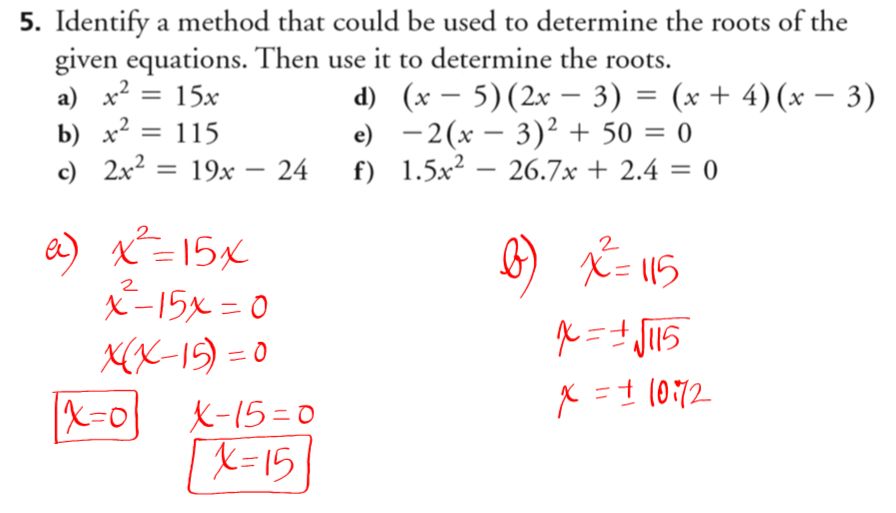 5. Identify a method that could be used to determine the roots of the
given equations. Then use it to determine the roots.
a) x² = 15x
d) (x − 5)(2x − 3) = (x + 4)(x − 3)
b) x² = 115
e) −2(x − 3)² + 50 = 0
c) 2x² = 19x − 24
f) 1.5x² − 26.7x + 2.4 = 0
a) x²=15x
x²−15x=0
x(x−15)=0
x=0 x−15=0
x=15
b) x²=115
x=±√115
x=±10.72